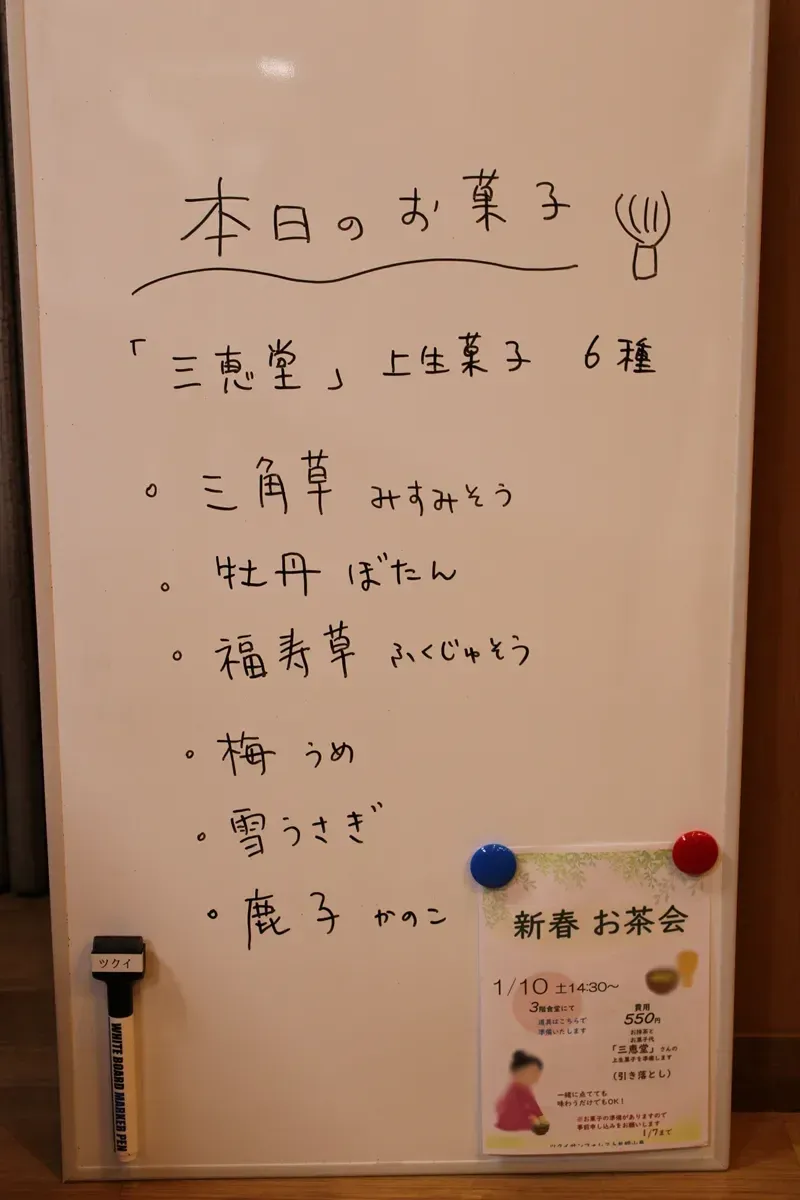 本日のお菓子
「三恵堂」 上生菓子 6種
三角草 みすみそう
牡丹 ぼたん
福寿草 ふくじゅそう
梅 うめ
雪うさぎ
鹿子 かのこ
ツクイ
WHITE BOARD MARKER PEN
新春 お茶会
1/10 土14:30~
3階食堂にて
道具はこちらで
準備いたします
費用
550円
お抹茶と
お菓子代
「三恵堂」さんの
上生菓子を準備します
(引き落とし)
一緒に点てても
味わうだけでもOK!
※お菓子の準備がありますので
事前申し込みをお願いします
1/7まで